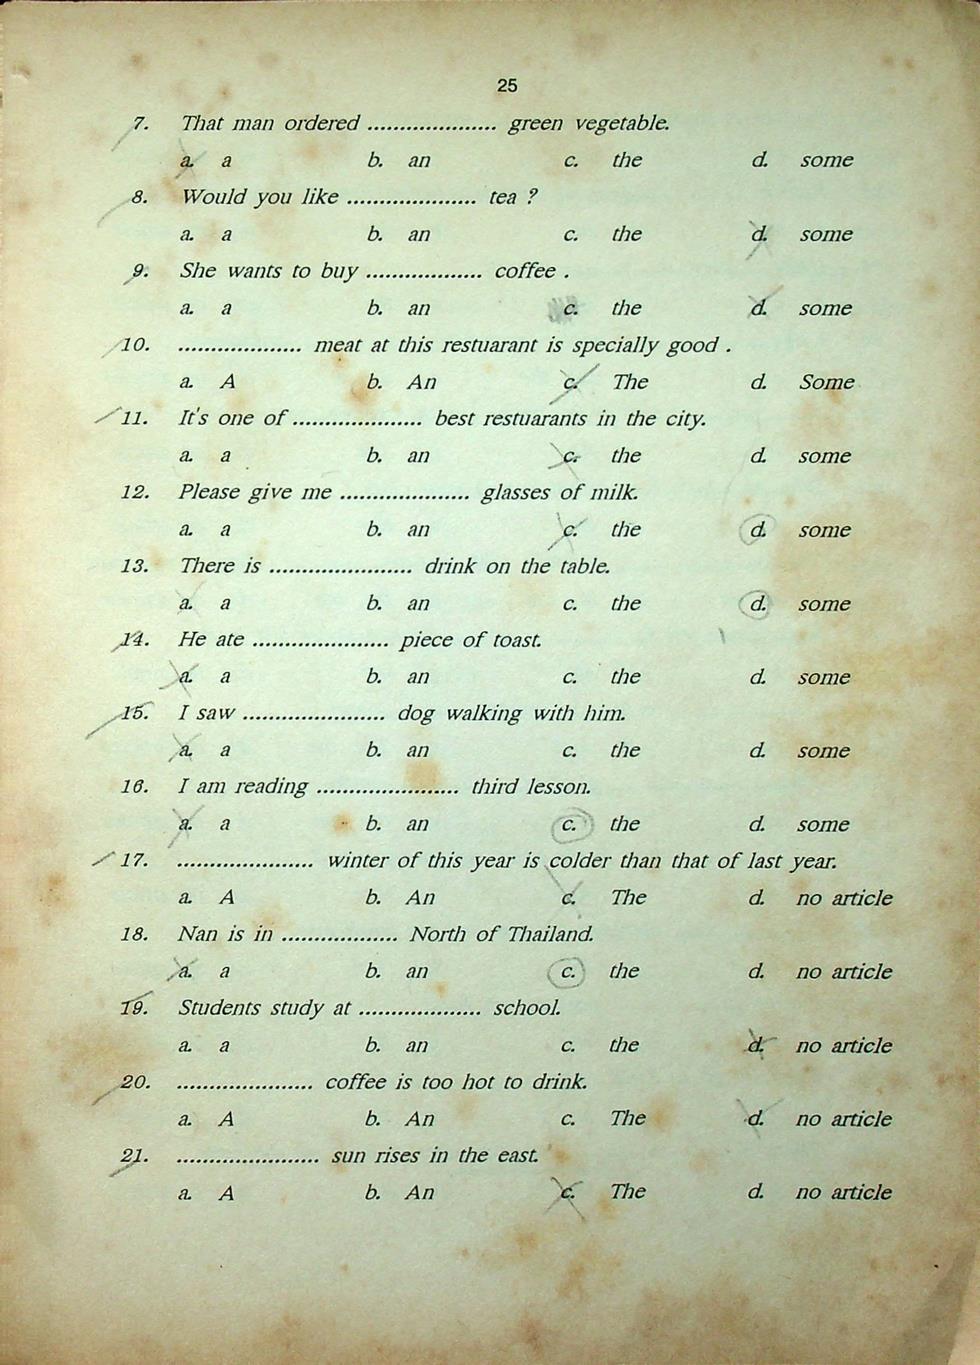 25
7. That man ordered .................... green vegetable.
a. a b. an c. the d. some
8. Would you like .................... tea ?
a. a b. an c. the d. some
9. She wants to buy .................. coffee .
a. a b. an c. the d. some
10. ................... meat at this restuarant is specially good .
a. A b. An c. The d. Some
11. It's one of .................... best restuarants in the city.
a. a b. an c. the d. some
12. Please give me .................... glasses of milk.
a. a b. an c. the d. some
13. There is ...................... drink on the table.
a. a b. an c. the d. some
14. He ate ..................... piece of toast.
a. a b. an c. the d. some
15. I saw ...................... dog walking with him.
a. a b. an c. the d. some
16. I am reading ...................... third lesson.
a. a b. an c. the d. some
17. ..................... winter of this year is colder than that of last year.
a. A b. An c. The d. no article
18. Nan is in .................. North of Thailand.
a. a b. an c. the d. no article
19. Students study at ................... school.
a. a b. an c. the d. no article
20. ..................... coffee is too hot to drink.
a. A b. An c. The d. no article
21. ...................... sun rises in the east.
a. A b. An c. The d. no article